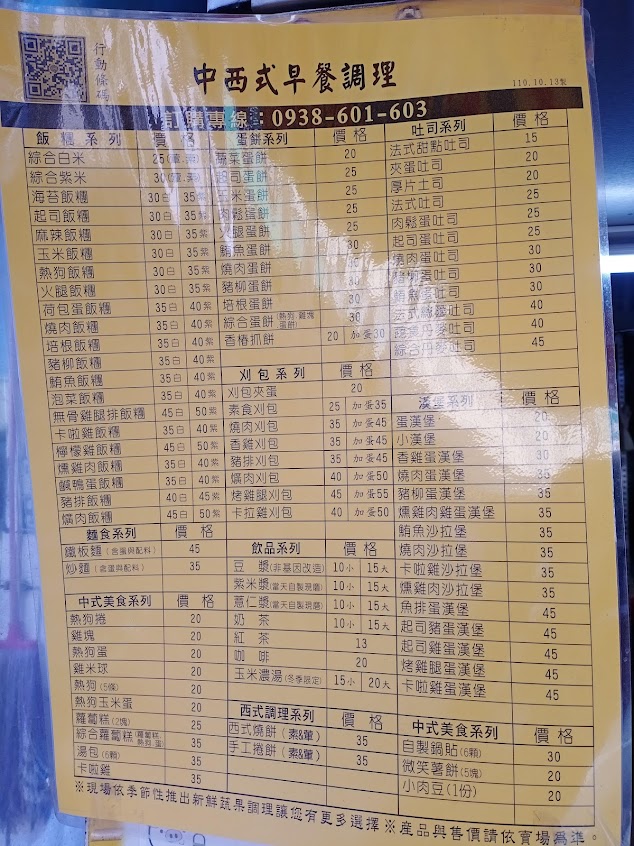 行動條碼
中西式早餐調理
110.10.13製
訂購專線：0938-601-603
飯糰系列 價格
綜合白米 25
綜合紫米 30
海苔飯糰 30白 35紫
起司飯糰 30白 35紫
麻辣飯糰 30白 35紫
玉米飯糰 30白 35紫
熱狗飯糰 30白 35紫
火腿飯糰 30白 35紫
荷包蛋飯糰 35白 40紫
燒肉飯糰 35白 40紫
培根飯糰 35白 40紫
豬柳飯糰 35白 40紫
鮪魚飯糰 35白 40紫
泡菜飯糰 35白 40紫
無骨雞腿排飯糰 45白 50紫
卡啦雞飯糰 35白 40紫
檸檬雞飯糰 45白 50紫
燻雞肉飯糰 35白 40紫
鹹鴨蛋飯糰 35白 40紫
豬排飯糰 40白 45紫
爌肉飯糰 45白 50紫
麵食系列 價格
鐵板麵(含蛋與配料) 45
炒麵(含蛋與配料) 35
中式美食系列 價格
熱狗捲 20
雞塊 20
熱狗蛋 20
雞米球 20
熱狗(5條) 20
熱狗玉米蛋 20
蘿蔔糕(2塊) 25
綜合蘿蔔糕(蘿蔔糕.熱狗.蛋) 30
湯包(6顆) 35
卡啦雞 35
蛋餅系列 價格
蔬菜蛋餅 20
起司蛋餅 25
玉米蛋餅 25
肉鬆蛋餅 25
火腿蛋餅 25
鮪魚蛋餅 30
燒肉蛋餅 30
豬柳蛋餅 30
培根蛋餅 30
綜合蛋餅(熱狗.雞塊蛋餅) 30
香椿抓餅 20 加蛋30
刈包系列 價格
刈包夾蛋 20
素食刈包 25 加蛋35
燒肉刈包 35 加蛋45
香雞刈包 35 加蛋45
豬排刈包 35 加蛋45
爌肉刈包 40 加蛋50
烤雞腿刈包 45 加蛋55
卡拉雞刈包 40 加蛋50
飲品系列 價格
豆漿(非基因改造) 10小 15大
紫米漿(當天自製現磨) 10小 15大
薏仁漿(當天自製現磨) 10小 15大
奶茶 10小 15大
紅茶 13
咖啡 20
玉米濃湯(冬季限定) 15小 20大
西式調理系列 價格
西式燒餅(素&葷) 35
手工捲餅(素&葷) 35
吐司系列 價格
法式甜點吐司 15
夾蛋吐司 20
厚片土司 20
法式吐司 25
肉鬆蛋吐司 25
起司蛋吐司 25
燒肉蛋吐司 30
豬柳蛋吐司 30
鮪魚蛋吐司 30
吐司 40
丹麥吐司 40
綜合丹麥吐司 45
漢堡系列 價格
蛋漢堡 20
小漢堡 20
香雞蛋漢堡 30
燒肉蛋漢堡 35
豬柳蛋漢堡 35
燻雞肉雞蛋漢堡 35
鮪魚沙拉堡 35
燒肉沙拉堡 35
卡啦雞沙拉堡 35
燻雞肉沙拉堡 35
魚排蛋漢堡 45
起司豬蛋漢堡 45
起司雞蛋漢堡 45
烤雞腿蛋漢堡 45
卡啦雞蛋漢堡 45
中式美食系列 價格
自製鍋貼(6顆) 30
微笑薯餅(5塊) 20
小肉豆(1份) 20
※現場依季節性推出新鮮蔬果調理讓您有更多選擇※產品與售價請依賣場為準。